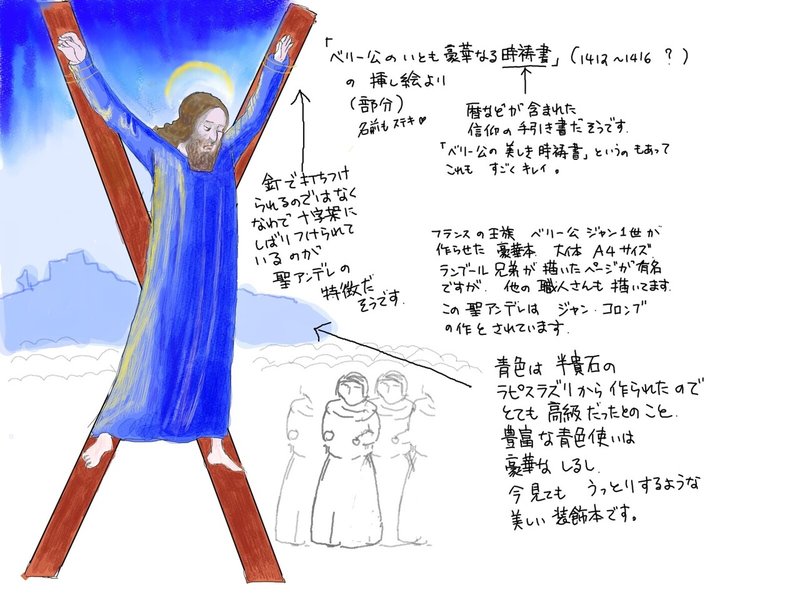 「ベリー公のいとも豪華なる時祷書」(1412～1416 ?)
の 挿し絵より
(部分)
名前もステキ♥
暦などが含まれた
信仰の手引き書だそうです.
「ベリー公の美しき時祷書」というのもあって
これも すごくキレイ。
釘で打ちつけ
られるのではなく
なわで十字架に
しばりつけられて
いるのが
聖アンデレの
特徴だ
そうです.
フランスの王族 ベリー公 ジャン1世が
作らせた 豪華本. 大体 A4サイズ.
ランブール兄弟が描いたページが有名
ですが. 他の職人さんも描いてます.
この聖アンデレは ジャン・コロンブ
の作とされています.
青色は 半貴石の
ラピスラズリから作られたので
とても高級だったとのこと.
豊富な青色使いは
豪華な しるし.
今見ても うっとりするような
美しい装飾本です。